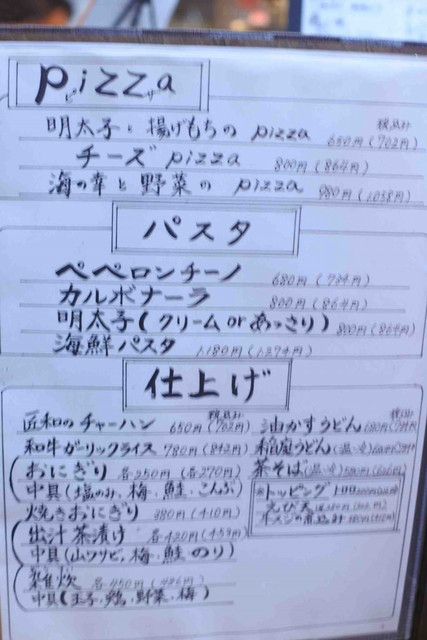 pizza
ピザ
税込み
明太子と揚げもちの pizza 650円(702円)
チーズ pizza 800円(864円)
海の幸と野菜の pizza 980円(1,058円)
パスタ
ペペロンチーノ 680円(734円)
カルボナーラ 800円(864円)
明太子(クリーム or あっさり) 800円(864円)
海鮮パスタ 1,180円(1,274円)
仕上げ
税込み
匠和のチャーハン 650円(702円)
和牛ガーリックライス 780円(842円)
おにぎり 各250円(各270円)
中具(塩のみ、梅、鮭、こんぶ)
焼きおにぎり 380円(410円)
出汁茶漬け 各420円(453円)
中具(山ワサビ、梅、鮭、のり)
雑炊 各450円(486円)
中具(玉子、鴨、野菜、梅)
税込
油かすうどん
稲庭うどん(温・冷)
茶そば(温・冷)
※トッピング トロロ
えび天
牛スジの煮込み